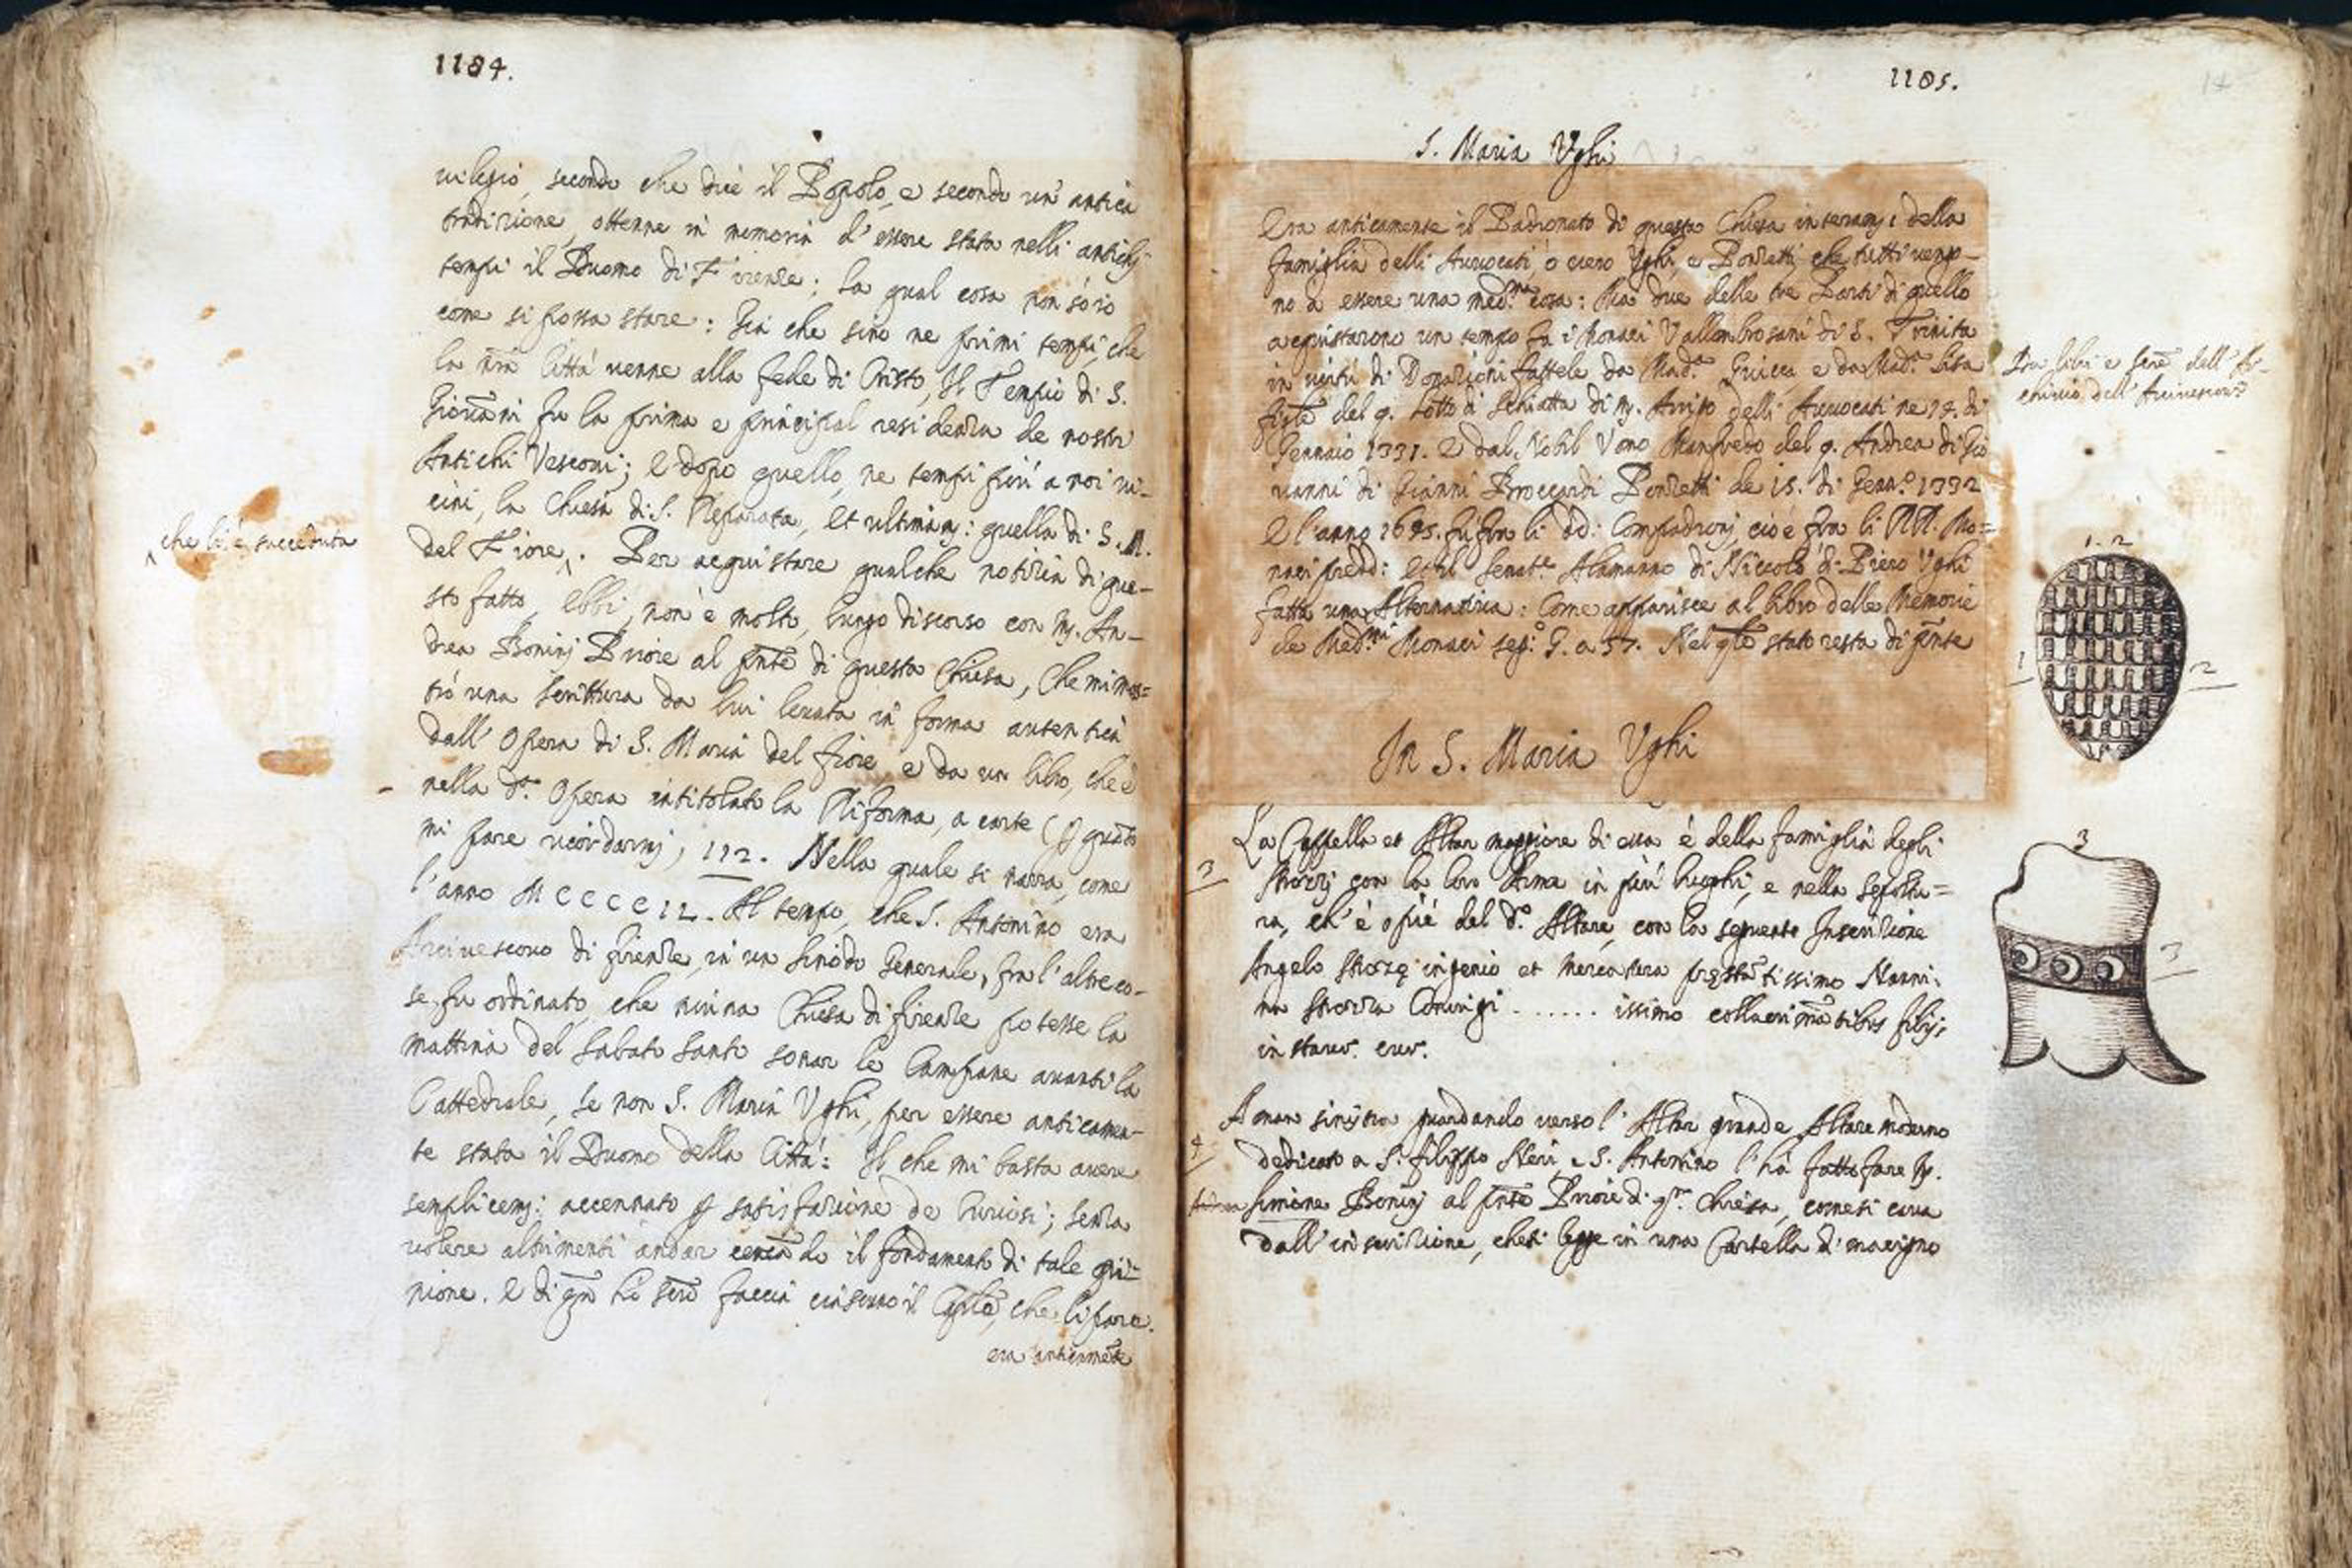 1184.
vilegio, secondo che dice il Popolo, e secondo un' antica
tradizione, ottenne in memoria d'essere stata nelli antichj
tempi il Duomo di Firenze; la qual cosa non sò io
come si possa stare: Già che sino ne primi tempi, che
la nr̃a Città venne alla fede di Cristo, Il Tempio di S.
Giovãni fu la prima e principal residenza de nostri
Antichi Vescovi; e dopo quello, ne tempi più a noi vi-
cini, la Chiesa di S. Reparata, et ultimam: quella di S. M.
del Fiore ^. Per acquistare qualche notizia di que-
^ che li è succeduta
sto fatto, ebbi, non è molto, lungo discorso con M. An-
drea Boninj Priore al pñte di questa Chiesa, che mi mos=
trò una scrittura da lui levata in forma autentica
dall' Opera di S. Maria del fiore, e da un libro, che è
nella d.ª Opera intitolato la Riforma, a carte (p quãto
mi pare ricordarmj) 112. Nella quale si narra, come
l'anno MCCCC12. Al tempo, che S. Antonino era
Arcivescovo di firenze, in un Sinodo Generale, fra l'altre co-
se, fu ordinato, che niuna Chiesa di firenze potesse la
mattina del Sabato Santo sonar le Campane avanti la
Cattedrale, se non S. Maria Ughi, per essere anticamen-
te stata il Duomo della Città: Il che mi basta avere
semplicem: accennato p satisfazione de Curiosi; senza
volere altrimenti andar cercãdo il fondamento di tale opi-
nione. E di qñ hò scrõ faccia ciascuno il Caple, che li pare.
era anticamẽte
1185.
14
S. Maria Ughi
Era anticamente il Padronato di questa Chiesa interam: della
famiglia delli Avvocati, ò vero Ughi, e Ponzetti che tutti vengo-
no a essere una med.ma cosa: Ma due delle tre Parti di quello
acquistarono un tempo fa i Monaci Vallombrosani di S. Trinita
in virtù di Donazioni fattele da Mad.ª Guicca e da Mad.ª Lisa
figlẽ del q. Lotto di Schiatta di M. Arrigo delli Avvocati ne 19. di
Gennaio 1331. E dal Nobil Vomo Manfredo del q. Andrea di Gio
vanni di Gianni Broccardi Ponzetti de 15. di Genn.º 1332
E l'anno 1695. fù fra li dd: Compadronj, cioè fra li RR. Mo=
naci predd: et il Senat.e Alamanno di Niccolò di Piero Ughi
fatta una Alternativa: Come apparisce al libro delle Memorie
de Med.mi Monaci seg.º G. a 57. Nel qle stato resta di pñte
Da libri e scrẽ dell' Ar-
chivio dell' Arcivescov.º
1. 2
1
2
In S. Maria Ughi
3
La Cappella et Altar maggiore di essa è della famiglia degli
Strozzj con la loro Arma in più luoghi, e nella sepoltu=
ra, ch' è a piè del d.º Altare, con la seguente Inscrizione
Angelo Strozę ingenio et mercatura pręstãtissimo Nanni:
na Strozza Coniugi ....... issimo collacrimãtibus filijs
instaur. cur.
3
3
4
A man sinistra guardando verso l' Altar grande Altare moderno
dedicato a S. filippo Neri, e S. Antonino l'hà fatto fare M.
Simone Boninj al pñte Priore di q.ta Chiesa, come si cava
dall' inscrizione, che si legge in una Cartella di macigno